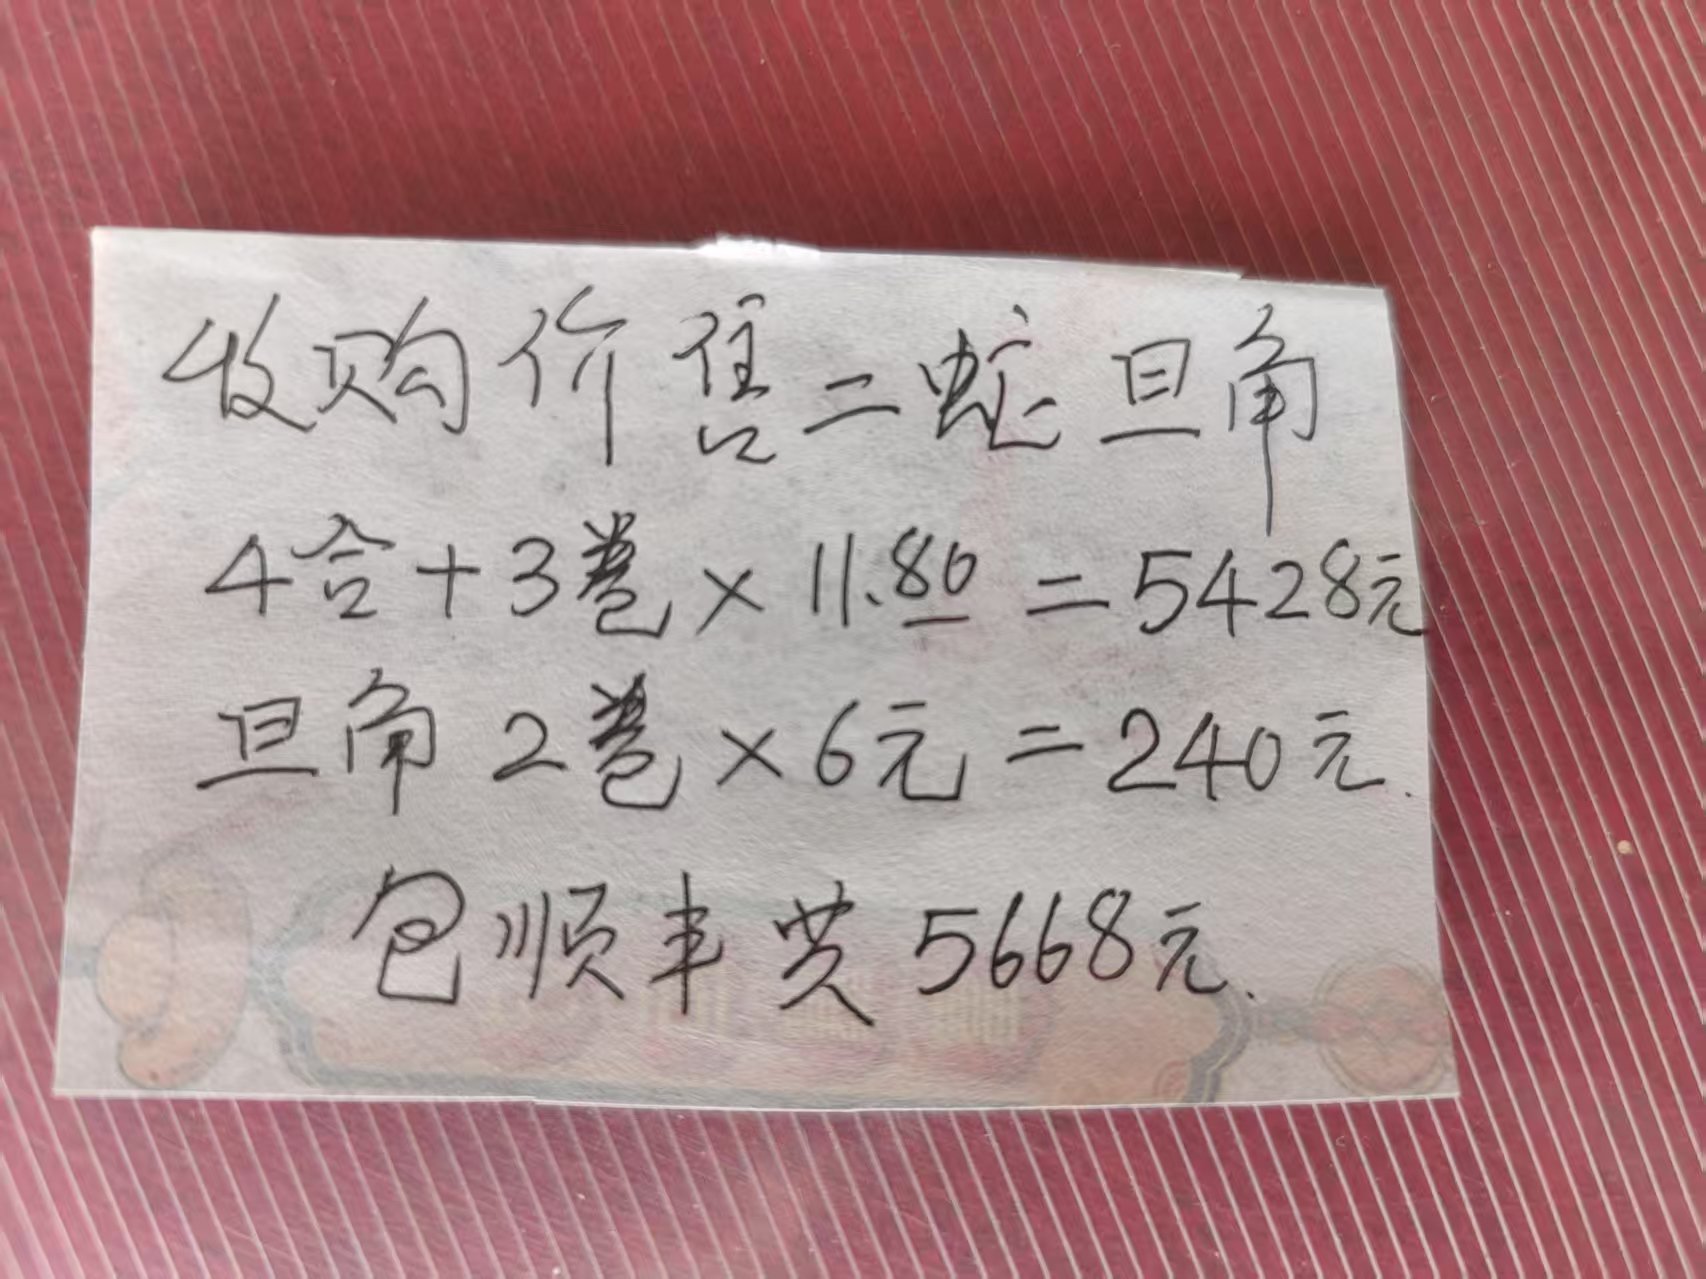 收购价售二蛇旦角
4合+3卷×11.80=5428元
旦角2卷×6元=240元.
包顺丰共5668元.